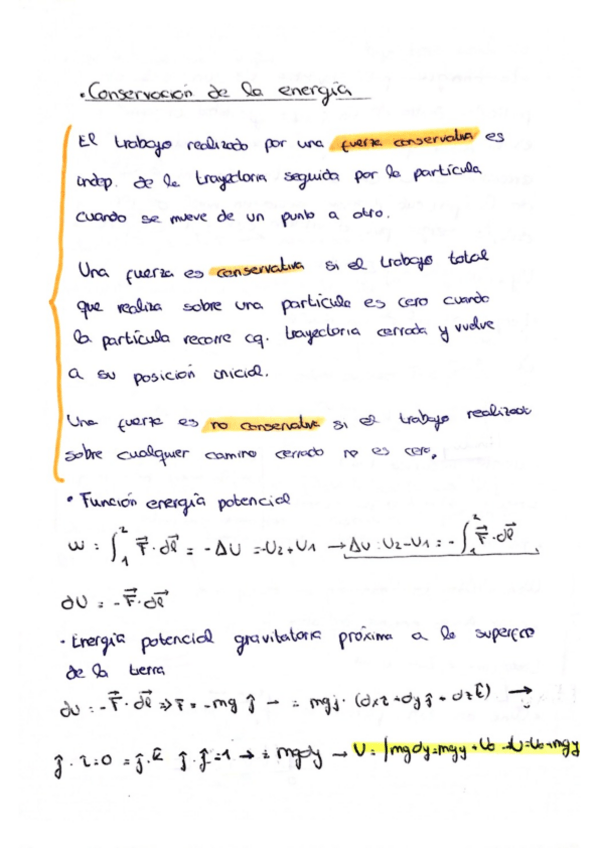 • Conservación de la energía
El trabajo realizado por una fuerza conservativa es
indep. de la trayectoria seguida por la partícula
cuando se mueve de un punto a otro.
Una fuerza es conservativa si el trabajo total
que realiza sobre una partícula es cero cuando
la partícula recorre cq. trayectoria cerrada y vuelve
a su posición inicial.
Una fuerza es no conservativa si el trabajo realizado
sobre cualquier camino cerrado no es cero.
• Función energía potencial
w = ∫₁² F⃗ · dl⃗ = -ΔU = -U₂ + U₁ → ΔU = U₂ - U₁ = - ∫₁² F⃗ · dl⃗
dU = - F⃗ · dl⃗
• Energía potencial gravitatoria próxima a la superficie
de la tierra
dU = - F⃗ · dl⃗ ⇒ F⃗ = -mg ĵ → = mgĵ · (dxî + dyĵ + dzk̂) →
ĵ · î = 0 = ĵ · k̂ ĵ · ĵ = 1 → = mgdy → U = ∫mgdy = mgy + U₀ → U = U₀ + mgy